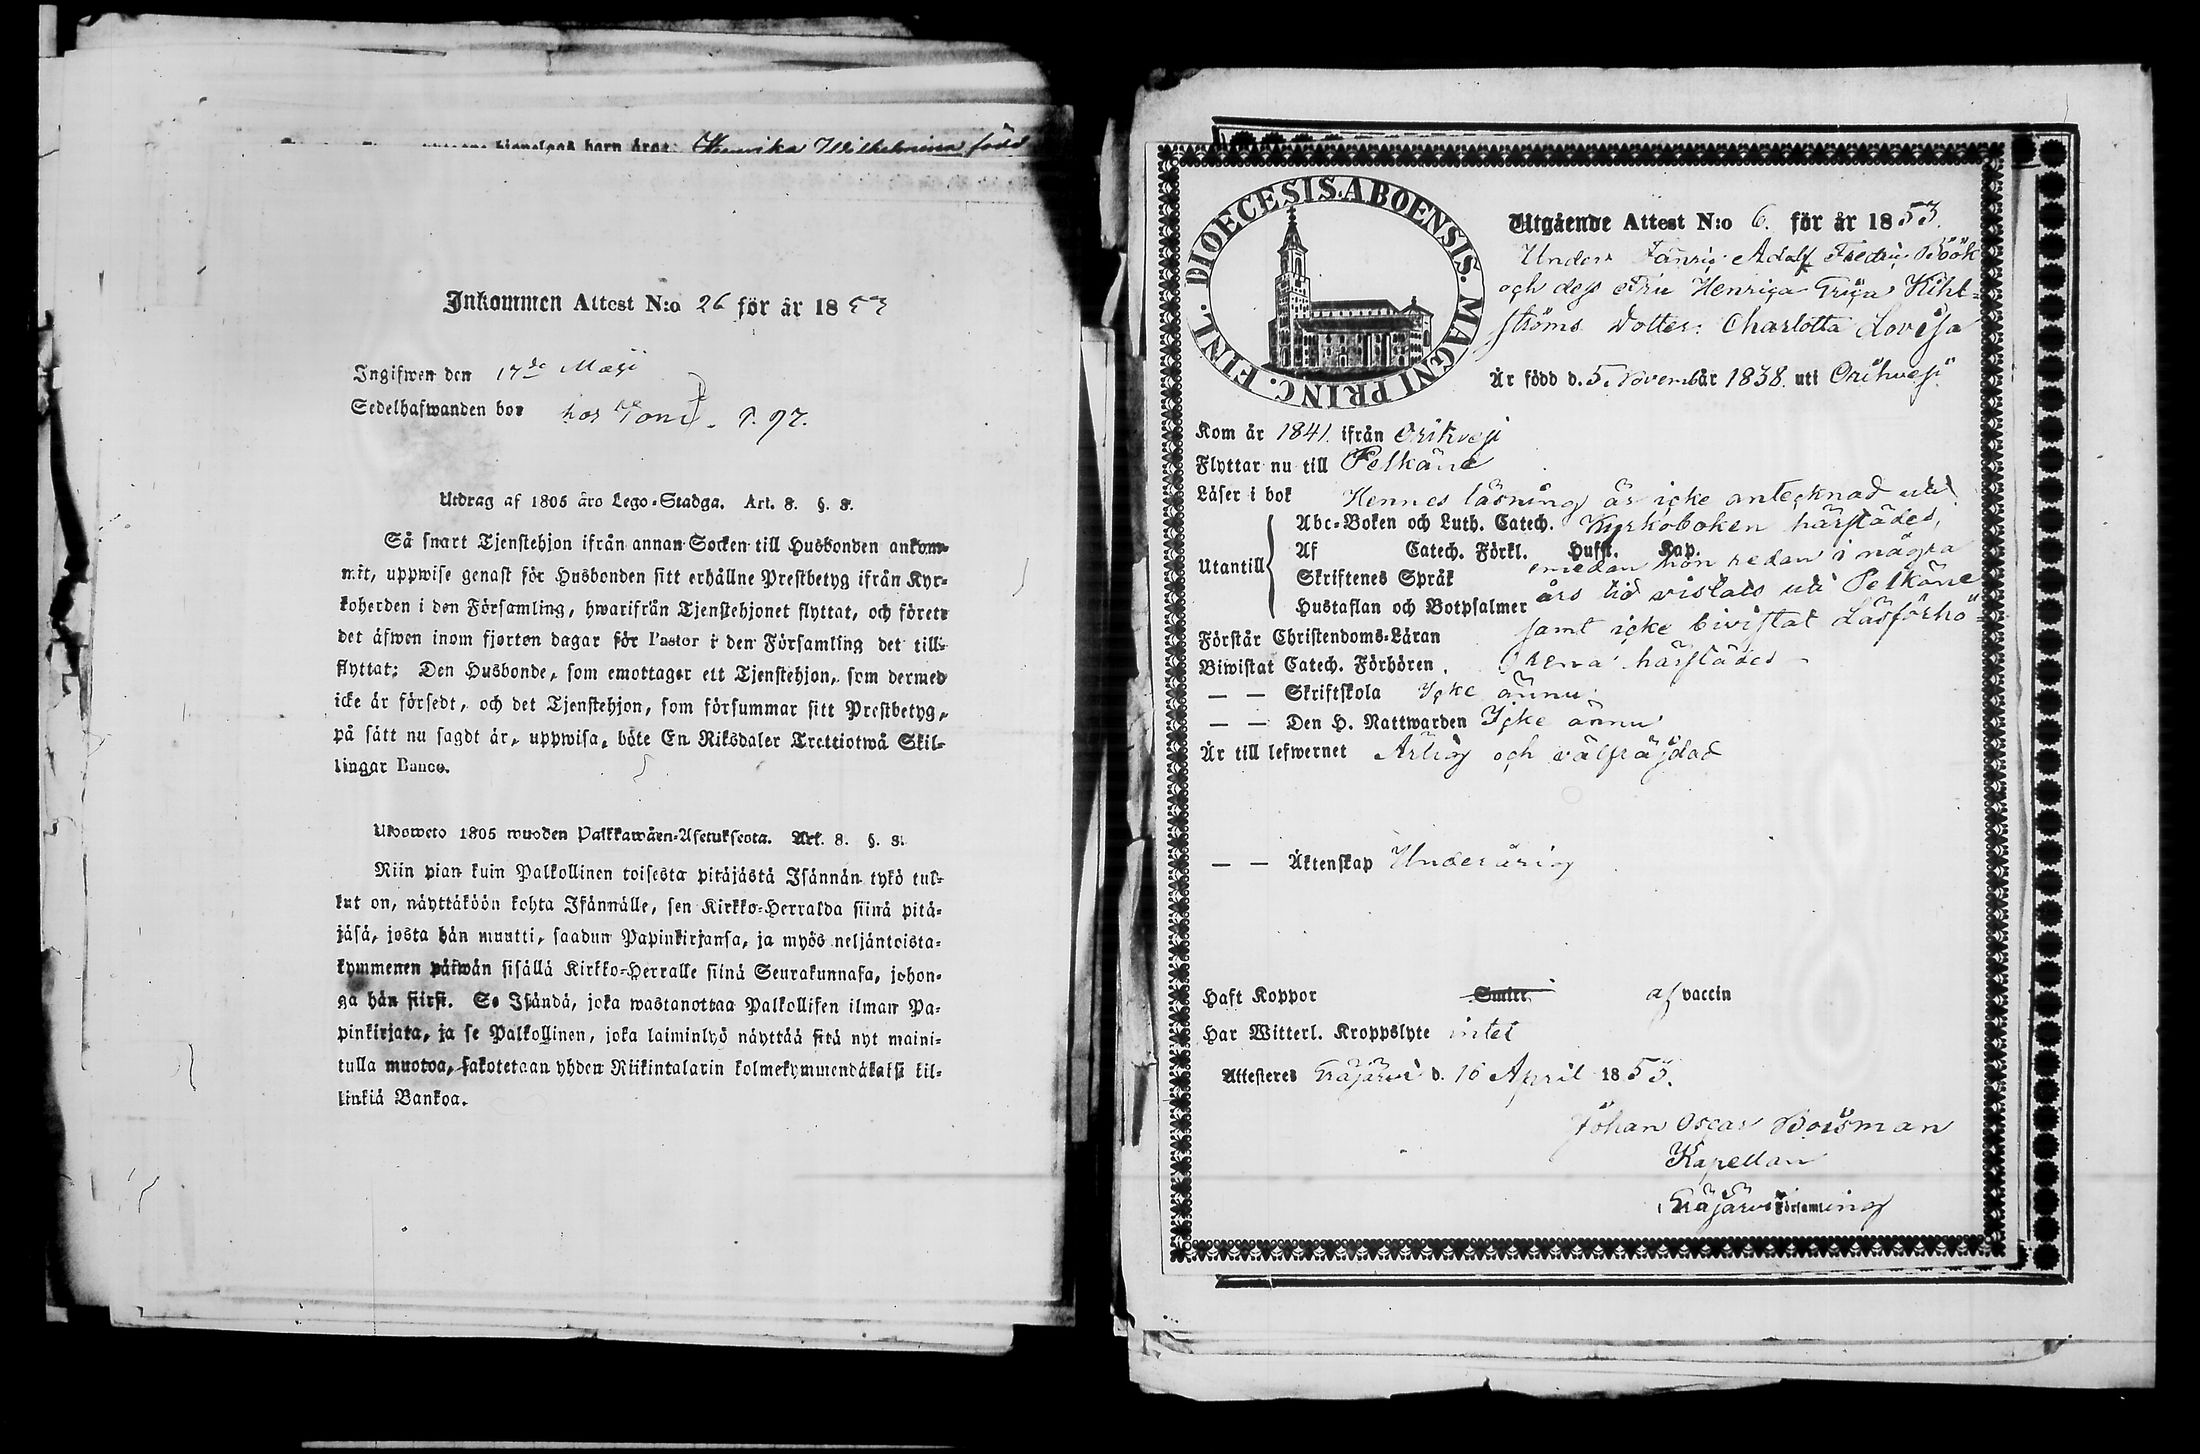 barn äro: Henrika Wilhelmina född
Inkommen Attest N:o 26 för år 1853
Ingifwen den 17de Maji
Sedelhafwanden bor hos P. 97.
Utdrag af 1805 åro Lego-Stadga. Art. 8. §. 8.
Så snart Tjenstehjon ifrån annan Socken till Husbonden ankom-
mit, uppwise genast för Husbonden sitt erhållne Prestbetyg ifrån Kyr-
koherden i den Församling, hwarifrån Tjenstehjonet flyttat, och förete
det äfwen inom fjorton dagar för Pastor i den Församling det till-
flyttat: Den Husbonde, som emottager ett Tjenstehjon, som dermed
icke är försedt, och det Tjenstehjon, som försummar sitt Prestbetyg,
på sätt nu sagdt är, uppwisa, böte En Riksdaler Trettiotwå Skil-
lingar Banco.
Ulosweto 1805 wuoden Palkkawäen-Asetuksesta. Art. 8. §. 8.
Niin pian kuin Palkollinen toisesta pitäjästä Isännän tykö tul-
lut on, näyttäköön kohta Isännälle, sen Kirkko-Herralda siinä pitä-
jäsä, josta hän muutti, saadun Papinkirjansa, ja myös neljäntoista-
kymmenen päiwän sisällä Kirkko-Herralle siinä Seurakunnasa, johon-
ga hän siirsi. Se Isändä, joka wastanottaa Palkollisen ilman Pa-
pinkirjata, ja se Palkollinen, joka laiminlyö näyttää sitä nyt maini-
tulla muotoa, sakotetaan yhden Riikintalarin kolmekymmendäkaksi kil-
linkiä Bankoa.
DIOECESIS.ABOENSIS. MAGNI PRINC. FINL.
Utgående Attest N:o 6. för år 1853.
Under Fänrig Adolf Fredric Böök
och dess Fru Henrica Kihl-
ströms dotter: Charlotta Lovisa
Är född d. 5 Novembr år 1838. uti Orihvesi
Kom år 1841. ifrån Orihvesi
Flyttar nu till Pelkäne
Läser i bok Hennes läsning är icke antecknad uti
Abc-Boken och Luth. Catech. Kyrkoboken härstädes,
Af Catech. Förkl. Hufst. Kap.
emedan hon redan i några
Utantill
Skriftenes Språk
Hustaflan och Botpsalmer års tid vistats uti Pelkäne
Förstår Christendoms-Läran samt icke bivistat Läsförhö-
Biwistat Catech. Förhören. rena härstädes
— — Skriftskola Icke ännu
— — Den H. Nattwarden Icke ännu
Är till lefwernet Ärlig och välfräjdad
— — Äktenskap Underårig
Haft Koppor Smitt. af vaccin
Har Witterl. Kroppslyte intet
Attesteres Eräjärvi d. 16 April 1853.
Johan Oscar Roisman
Kapellan
Eräjärvi Församling